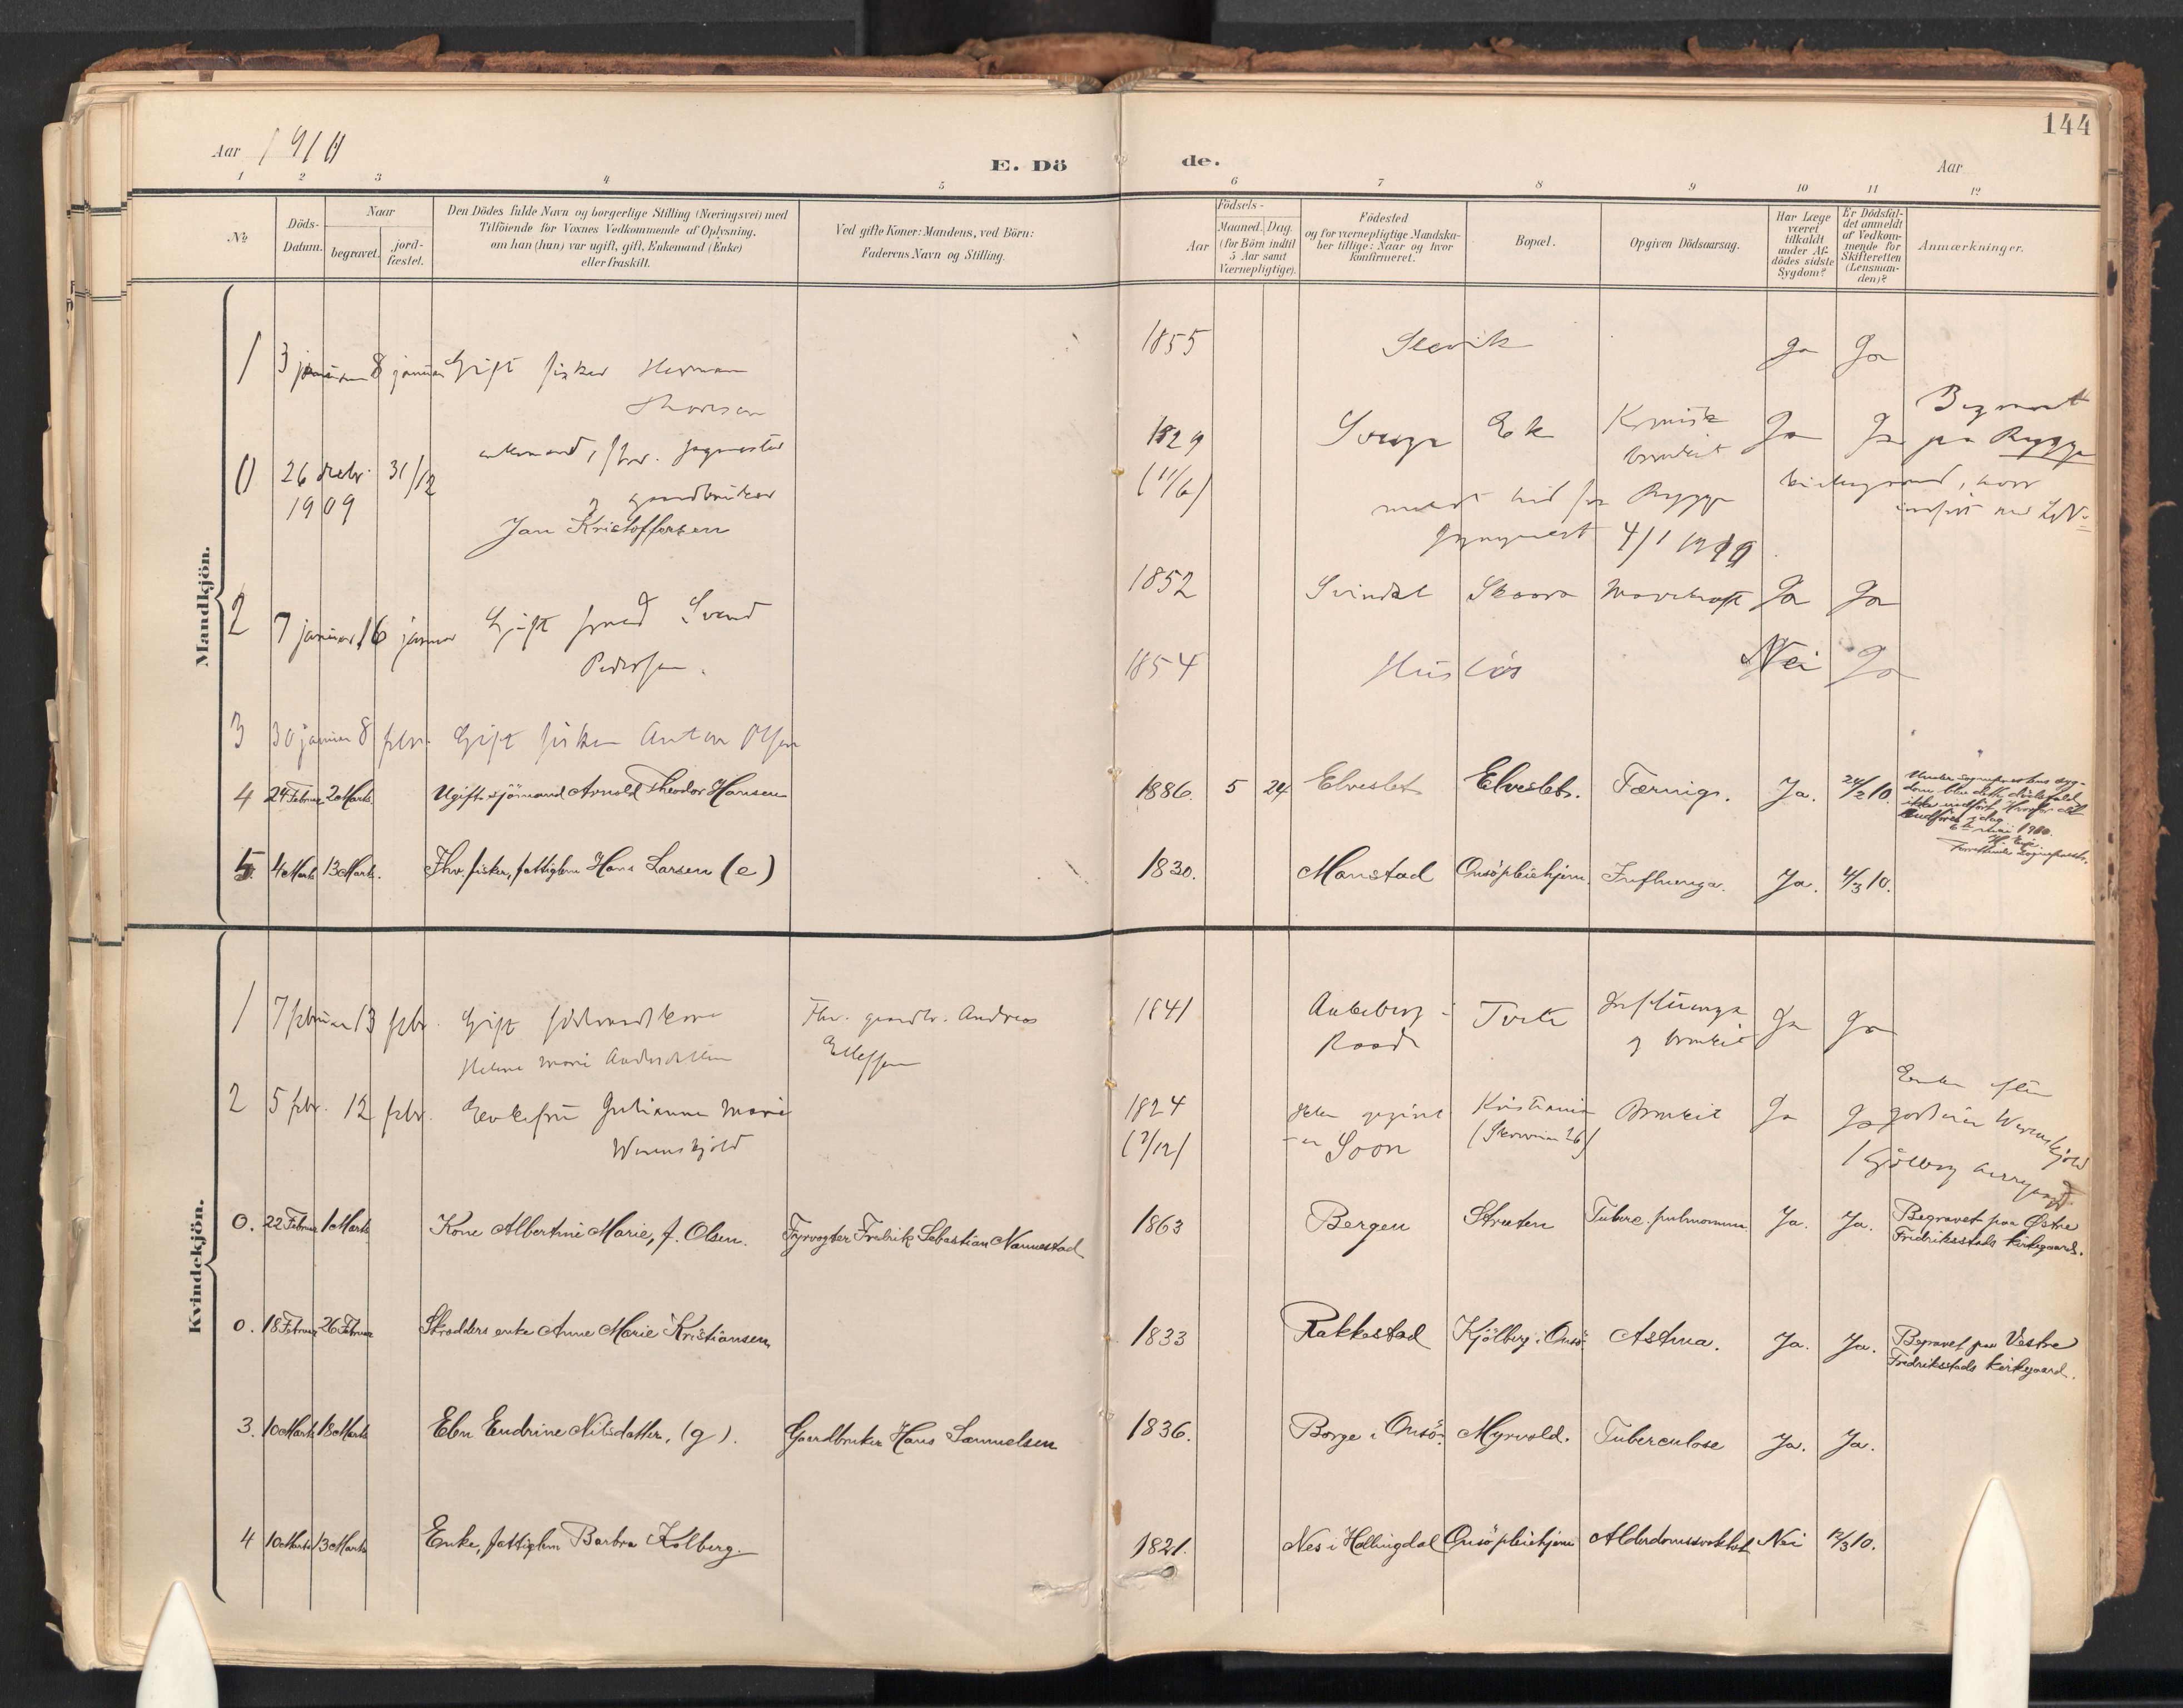 144
Aar 1910
E. Dö de.
Aar
1 2 3 4 5 6 7 8 9 10 11 12
No
Döds-Datum.
Naar
begravet.
jord-fæstet.
Den Dödes fulde Navn og borgerlige Stilling (Næringsvei) med
Tilföiende for Voxnes Vedkommende af Oplysning,
om han (hun) var ugift, gift, Enkemand (Enke)
eller fraskilt.
Ved gifte Koner: Mandens, ved Börn:
Faderens Navn og Stilling.
Födsels-
Aar
Maaned. Dag.
(for Börn indtil
5 Aar samt
Værnepligtige).
Födested
og for værnepligtige Mandska-
ber tillige: Naar og hvor
konfirmeret.
Bopæl.
Opgiven Dödsaarsag.
Har Læge
været
tilkaldt
under Af-
dödes sidste
Sygdom?
Er Dödsfal-
det anmeldt
af Vedkom-
mende for
Skifteretten
(Lensman-
den)?
Anmærkninger.
Mandkjön.
1 3 januar 8 januar Gift fisker Herman 1855 Slevik Ja Ja
Thoresen
0 26 decbr. 31/12 enkemand, fhv. 1829 Sverge Ek Ja Ja Begravet
1909 og gaardbruker (11/6) paa Rygge
Jan Kristoffersen meldt hid fra Rygge
4/1 1910
2 7 januar 16 januar Gift Svend 1852 Svindal Skaara Mavekræft Ja Ja
Pedersen.
3 30 januar 8 febr. Gift fisker Anton Olsen 1854 Huslös Nei Ja
4 24 Februar 2 Marts. Ugift sjömand Arnold Theodor Hansen 1886. 5 24 Elveslet Elveslet. Tæring. Ja. 24/2 10. Under sogneprestens syg-
dom blev dette dödsfald
ikke indfört, hvorfor det
indföres idag.
6te mai 1910.
Sogneprest.
5. 4 Marts 13 Marts. Fhv. fisker, fattiglem Hans Larsen (e) 1830. Manstad Onsöpleiehjem. Influenza. Ja. 4/3 10.
Kvindekjön.
1 7 februar 13 febr. Gift Fhv. gaardbr. Andreas 1841 Tork Influenza Ja Ja
Helene Marie Andersdatter Ellefsen Raade og bronkit
2 5 febr. 12 febr. Enkefru Julianne Marie 1824 Kristiania Bronkit Ja Ja Enke efter
Werenskjold (7/12) Soon Werenskjold
0. 22 Februar 1 Marts Kone Albertine Marie, f. Olsen. Fyrvogter Fredrik Sebastian Nannestad 1863 Bergen Struten Tuberc. pulmonum Ja. Ja. Begravet paa Østre
Fredriksstads kirkegaard.
0. 18 Februar 26 Februar Skrædders enke Anne Marie Kristiansen 1833 Rakkestad Kjölberg i Onsö Astma. Ja. Ja. Begravet paa Vestre
Fredriksstads kirkegaard.
3. 10 Marts 18 Marts Elen Endrine Nilsdatter, (g). Gaardbruker Hans Samuelsen 1836. Borge i Onsö. Myrvold. Tuberculose Ja. Ja.
4 10 Marts 13 Marts Enke, fattiglem Barbra Kolberg. 1821. Nes i Hallingdal Onsöpleiehjem Alderdomssvakhet Nei 12/3 10.